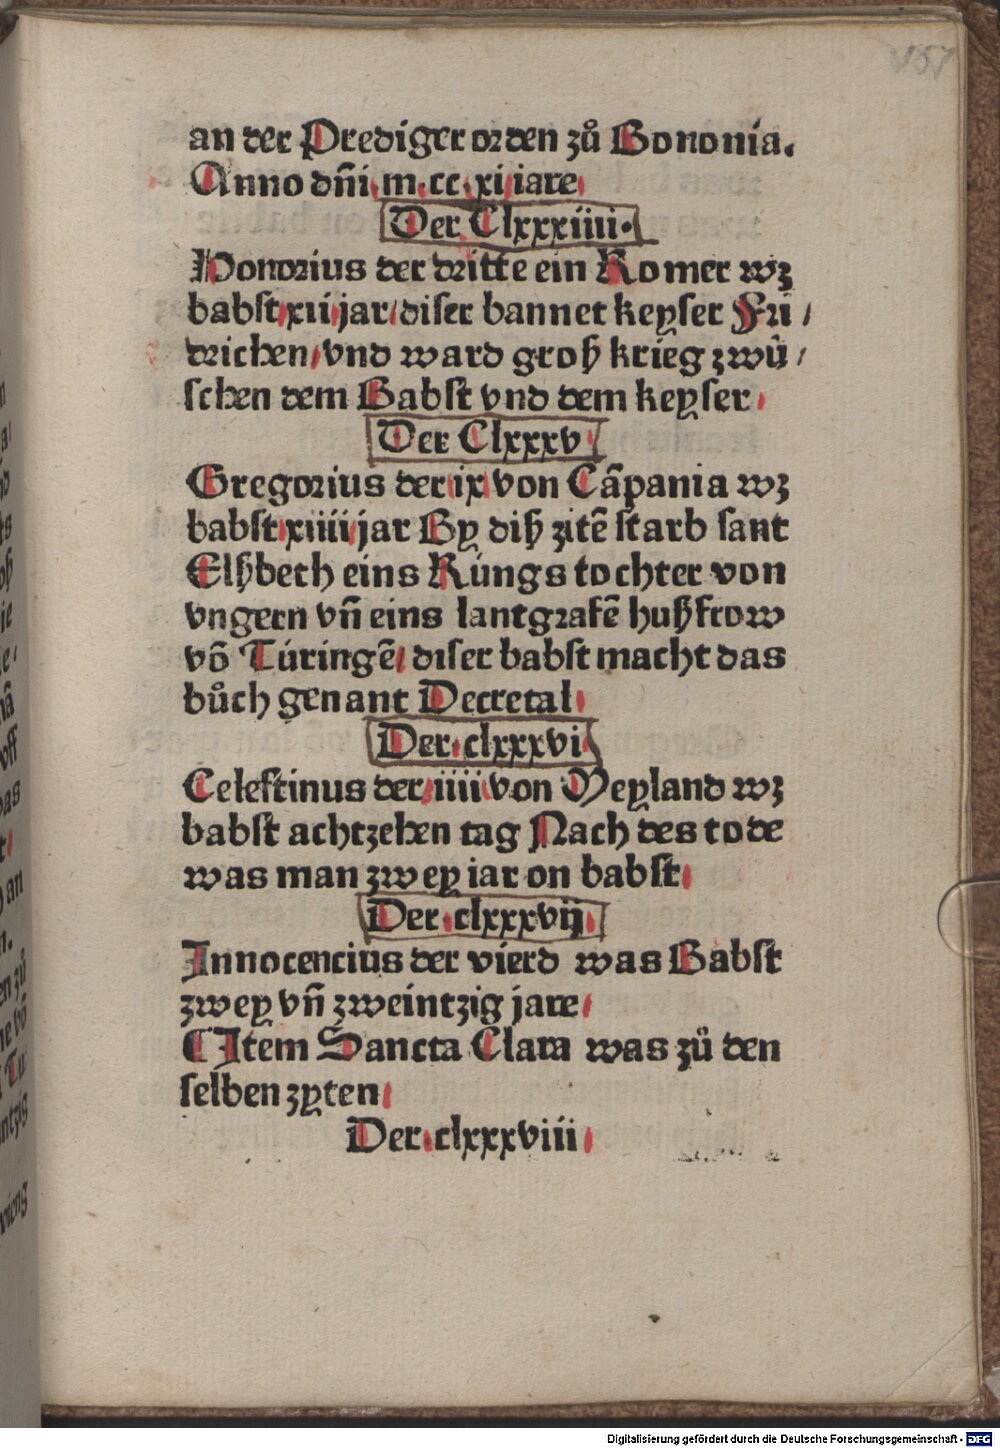 an der Prediger orden zů Bononia.
Anno dñi m.cc.xi iare
Der Clxxxiiii.
Honorius der dritte ein Romer wz
babst xii jar/ diser bannet keyser Fri/
drichen/ vnd ward groß krieg zwü/
schen dem Babst vnd dem keyser
Der Clxxxv
Gregorius der ix von Cãpania wz
babst xiiii jar By diß zitẽ starb sant
Elßbeth eins Küngs tochter von
vngern vñ eins lantgrafẽ hußfrow
võ Türingẽ/ diser babst macht das
bůch genant Decretal
Der clxxxvi
Celestinus der iiii von Meyland wz
babst achtzehen tag Nach des tode
was man zwey iar on babst
Der clxxxvij
Innocencius der vierd was Babst
zwey vñ zweintzig jare
¶ Item Sancta Clara was zů den
selben zyten
Der clxxxviii
Digitalisierung gefördert durch die Deutsche Forschungsgemeinschaft - DFG